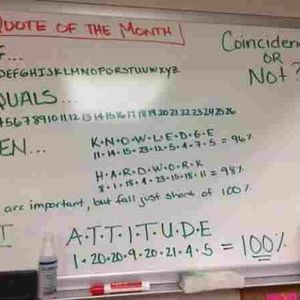 QUOTE OF THE MONTH
Coinciden
OR
Not?
F...
DEFGHIJKLMNOPQRSTUVWXYZ
QUALS...
4 5 6 7 8 9 10 11 12 13 14 15 16 17 18 19 20 21 22 23 24 25 26
EN...
K·N·O·W·L·E·D·G·E
11·14·15·23·12·5·4·7·5 = 96%
H·A·R·D·W·O·R·K
8·1·18·4·23·15·18·11 = 98%
are important, but fall just short of 100%
T
A·T·T·I·T·U·D·E
1·20·20·9·20·21·4·5 = 100%